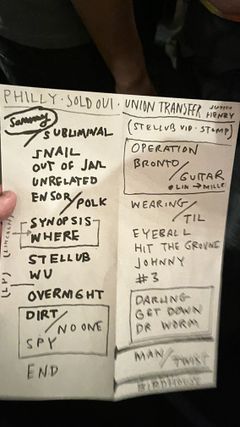 PHILLY · SOLD OUT · UNION TRANSFER
HENRY
Sammy
SUBLIMINAL
SNAIL
OUT OF JAIL
UNRELATED
ENSOR/POLK
(LINCOLN)
SYNOPSIS
WHERE
STELLUB
WU
(LP)
OVERNIGHT
DIRT/
NO ONE
SPY
END
(STELLUB VID · STOMP)
OPERATION
BRONTO/
GUITAR
LIN → MILLE
WEARING/
TIL
EYEBALL
HIT THE GROUND
JOHNNY
#3
DARLING
GET DOWN
DR WORM
MAN/TWIST
BIRDHOUSE